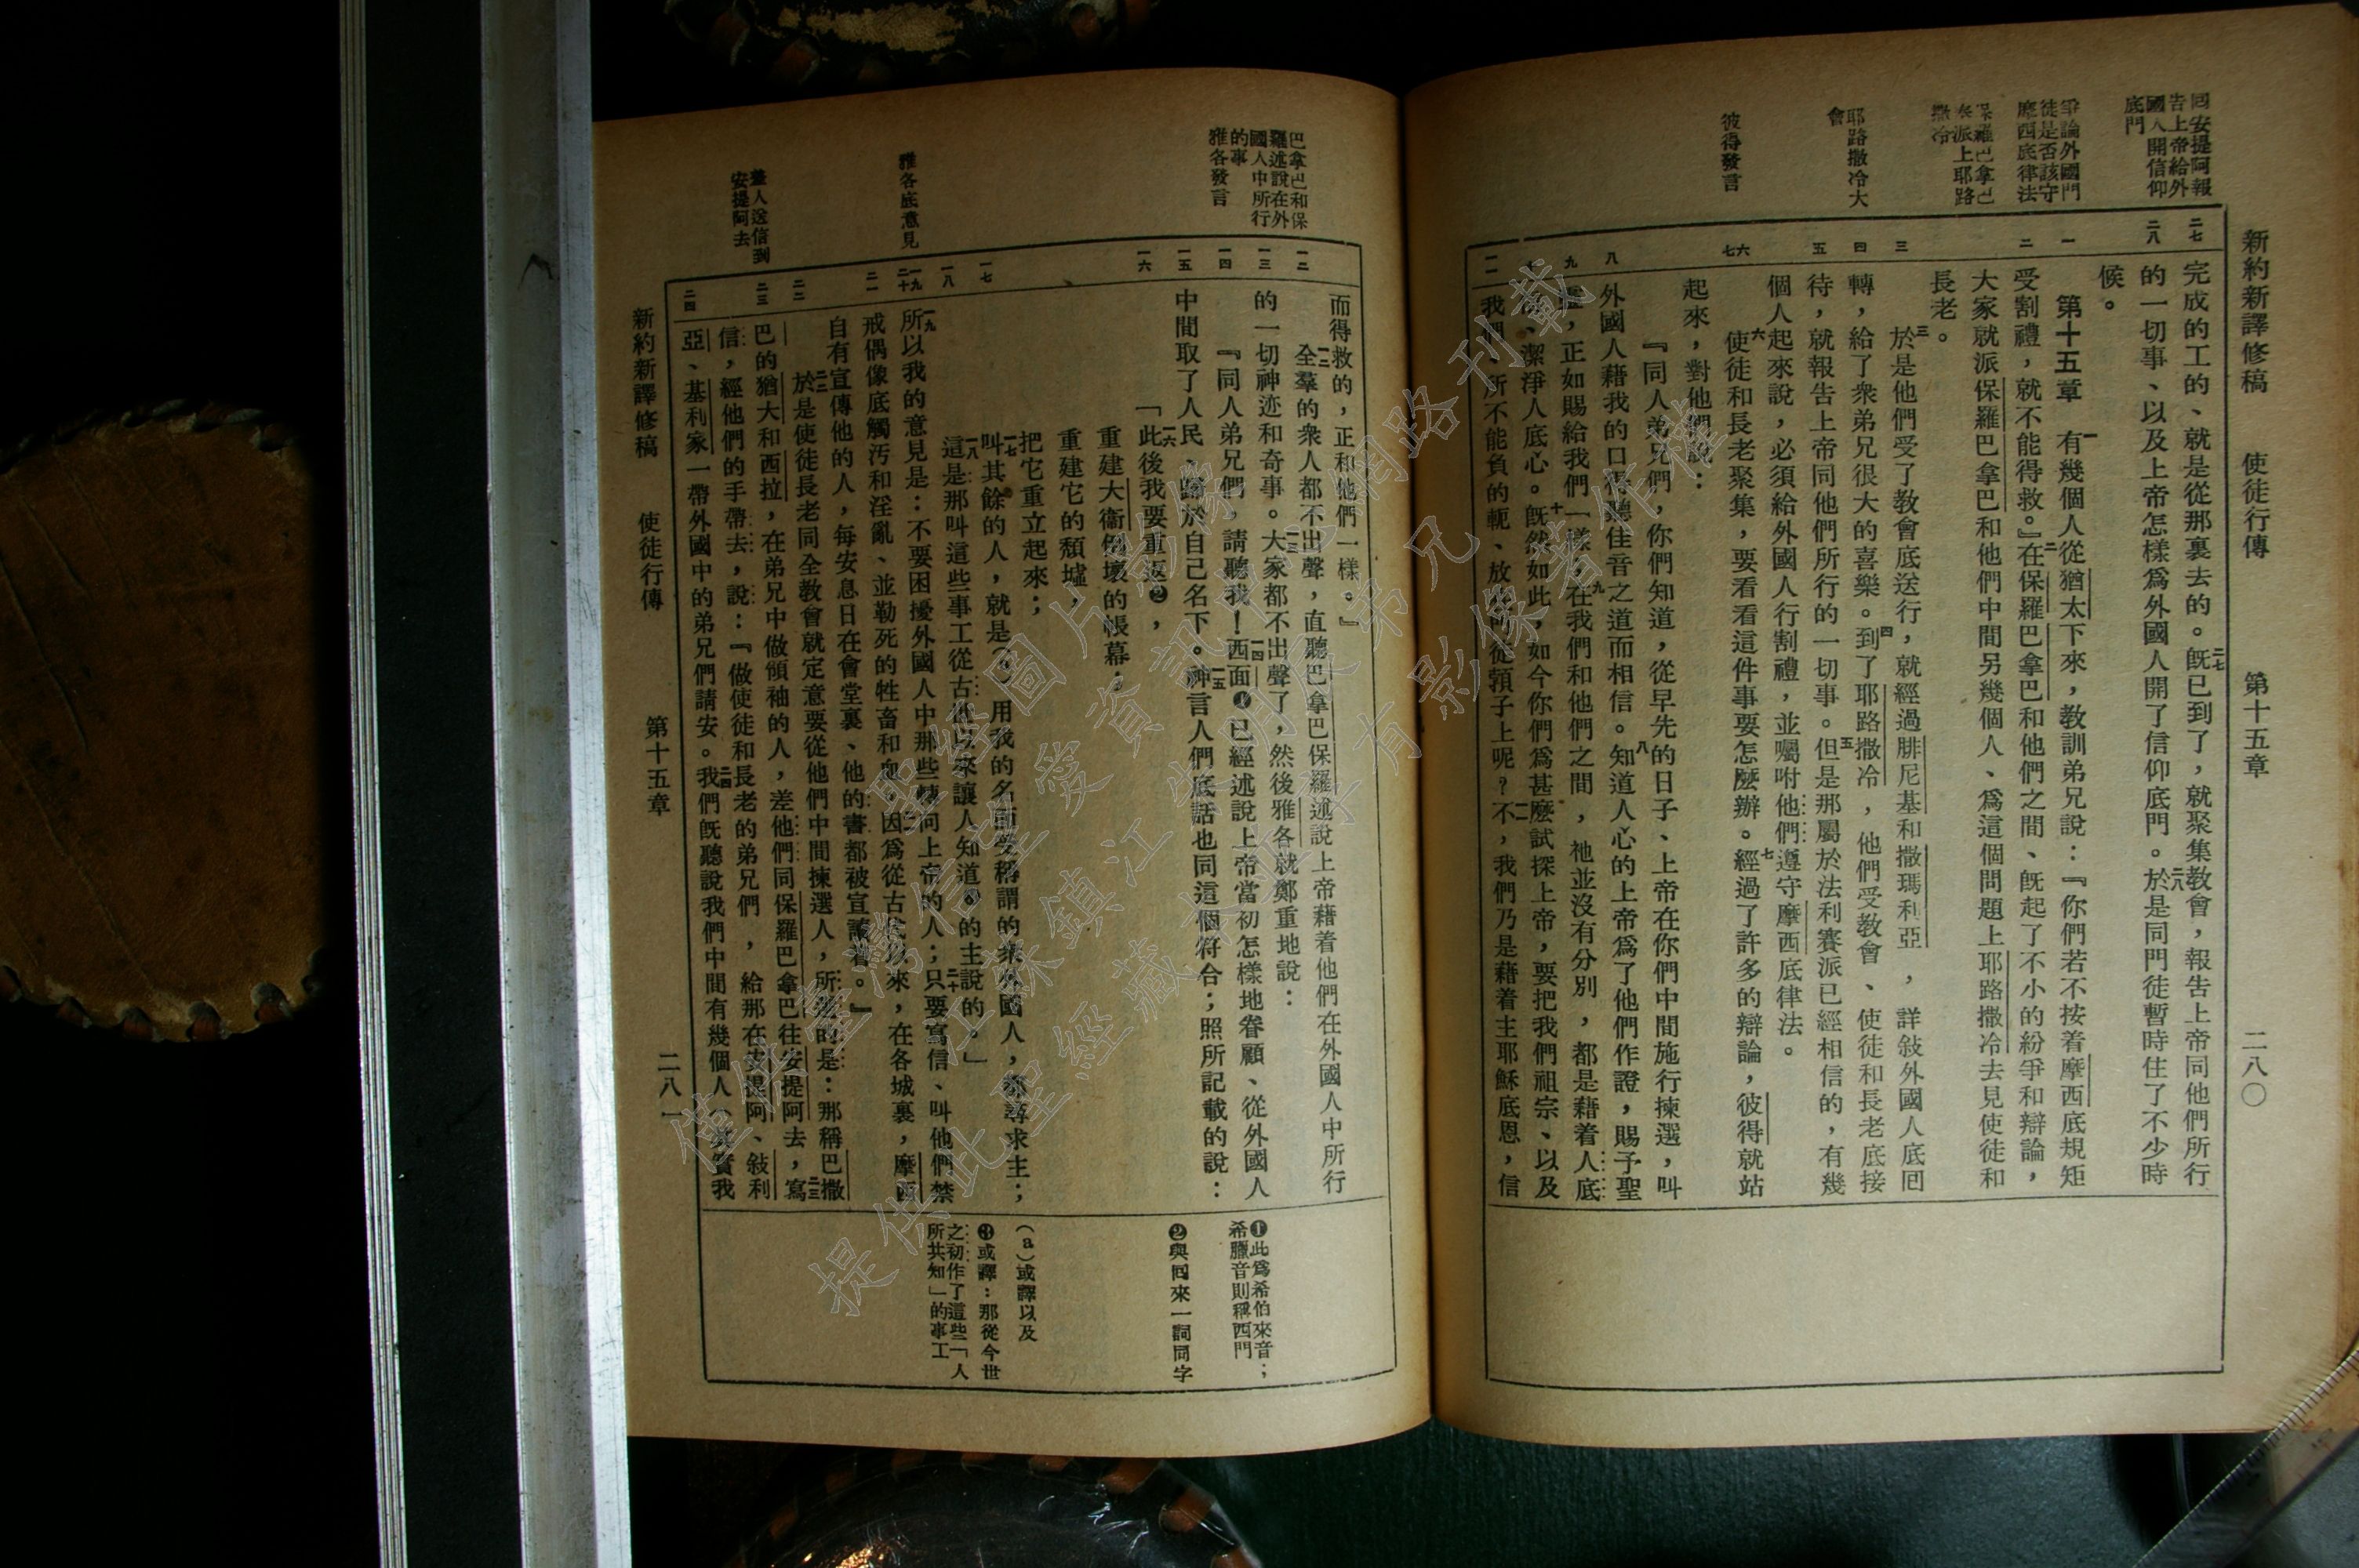 新約新譯修稿　使徒行傳　第十五章　二八〇
同安提阿報
告上帝給外
國人開信仰
底門
爭論外國門
徒是否該守
摩西底律法
保羅巴拿巴
奉派上耶路
撒冷
耶路撒冷大
會
彼得發言
二七
二八
一
二
三
四
五
六
七
八
九
十
一一
完成的工的、就是從那裏去的。二七既已到了，就聚集教會，報告上帝同他們所行
的一切事、以及上帝怎樣爲外國人開了信仰底門。二八於是同門徒暫時住了不少時
候。
第十五章　一有幾個人從猶太下來，教訓弟兄說：『你們若不按着摩西底規矩
受割禮，就不能得救。』二在保羅巴拿巴和他們之間、既起了不小的紛爭和辯論，
大家就派保羅巴拿巴和他們中間另幾個人、爲這個問題上耶路撒冷去見使徒和
長老。
三於是他們受了教會底送行，就經過腓尼基和撒瑪利亞，詳敍外國人底囘
轉，給了衆弟兄很大的喜樂。四到了耶路撒冷，他們受教會、使徒和長老底接
待，就報告上帝同他們所行的一切事。五但是那屬於法利賽派已經相信的，有幾
個人起來說，必須給外國人行割禮，並囑咐他們遵守摩西底律法。
六使徒和長老聚集，要看看這件事要怎麽辦。七經過了許多的辯論，彼得就站
起來，對他們說：
『同人弟兄們，你們知道，從早先的日子、上帝在你們中間施行揀選，叫
外國人藉我的口得聽佳音之道而相信。八知道人心的上帝爲了他們作證，賜予聖
靈，正如賜給我們一樣，九在我們和他們之間，祂並沒有分別，都是藉着人底
信、潔淨人底心。十既然如此，如今你們爲甚麽試探上帝，要把我們祖宗、以及
我們、所不能負的軛、放在門徒頸子上呢？一一不，我們乃是藉着主耶穌底恩，信
巴拿巴和保
羅述說在外
國人中所行
的事
雅各發言
雅各底意見
差人送信到
安提阿去
一二
一三
一四
一五
一六
一七
一八
一九
二十
二一
二二
二三
二四
而得救的，正和他們一樣。』
一二全羣的衆人都不出聲，直聽巴拿巴保羅述說上帝藉着他們在外國人中所行
的一切神迹和奇事。一三大家都不出聲了，然後雅各就鄭重地說：
『同人弟兄們，請聽我！一四西面❶已經述說上帝當初怎樣地眷顧、從外國人
中間取了人民、歸於自己名下。一五神言人們底話也同這個符合；照所記載的說：
一六「此後我要重返❷，
重建大衞倒壞的帳幕；
重建它的頹墟，
把它重立起來；
一七叫其餘的人，就是(a)用我的名而受稱謂的衆外國人，都尋求主；
一八這是那叫這些事工從古代以來讓人知道❸的主說的。」
一九所以我的意見是：不要困擾外國人中那些轉向上帝的人；二十只要寫信、叫他們禁
戒偶像底觸汚和淫亂、並勒死的牲畜和血。二一因爲從古代以來，在各城裏，摩西
自有宣傳他的人，每安息日在會堂裏、他的書都被宣讀着。』
二二於是使徒長老同全教會就定意要從他們中間揀選人，所選的是：那稱巴撒
巴的猶大和西拉，在弟兄中做領袖的人，差他們同保羅巴拿巴往安提阿去，二三寫
信，經他們的手帶去，說：『做使徒和長老的弟兄們，給那在安提阿、敍利
亞、基利家一帶外國中的弟兄們請安。二四我們既聽說我們中間有幾個人（其實我
❶此爲希伯來音；
希臘音則稱西門
❷與囘來一詞同字
(a)或譯以及
❸或譯：那從今世
之初作了這些「人
所共知」的事工
新約新譯修稿　使徒行傳　第十五章　二八一
僅供臺灣信望愛資訊中心網路刊載
提供此聖經藏本